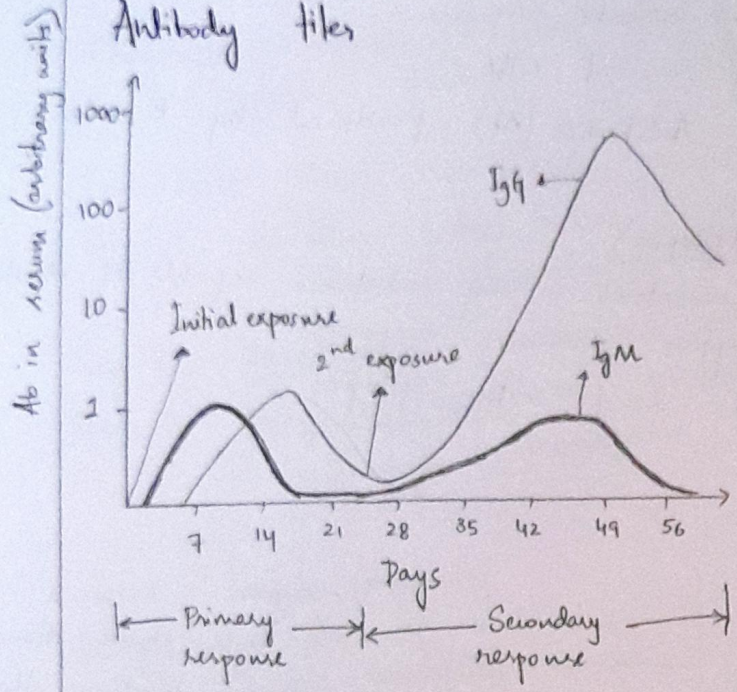 Antibody titer
Ab in serum (arbitrary units)
1000
100
10
1
IgG
Initial exposure
2nd exposure
IgM
7 14 21 28 35 42 49 56
Days
Primary
response
Secondary
response